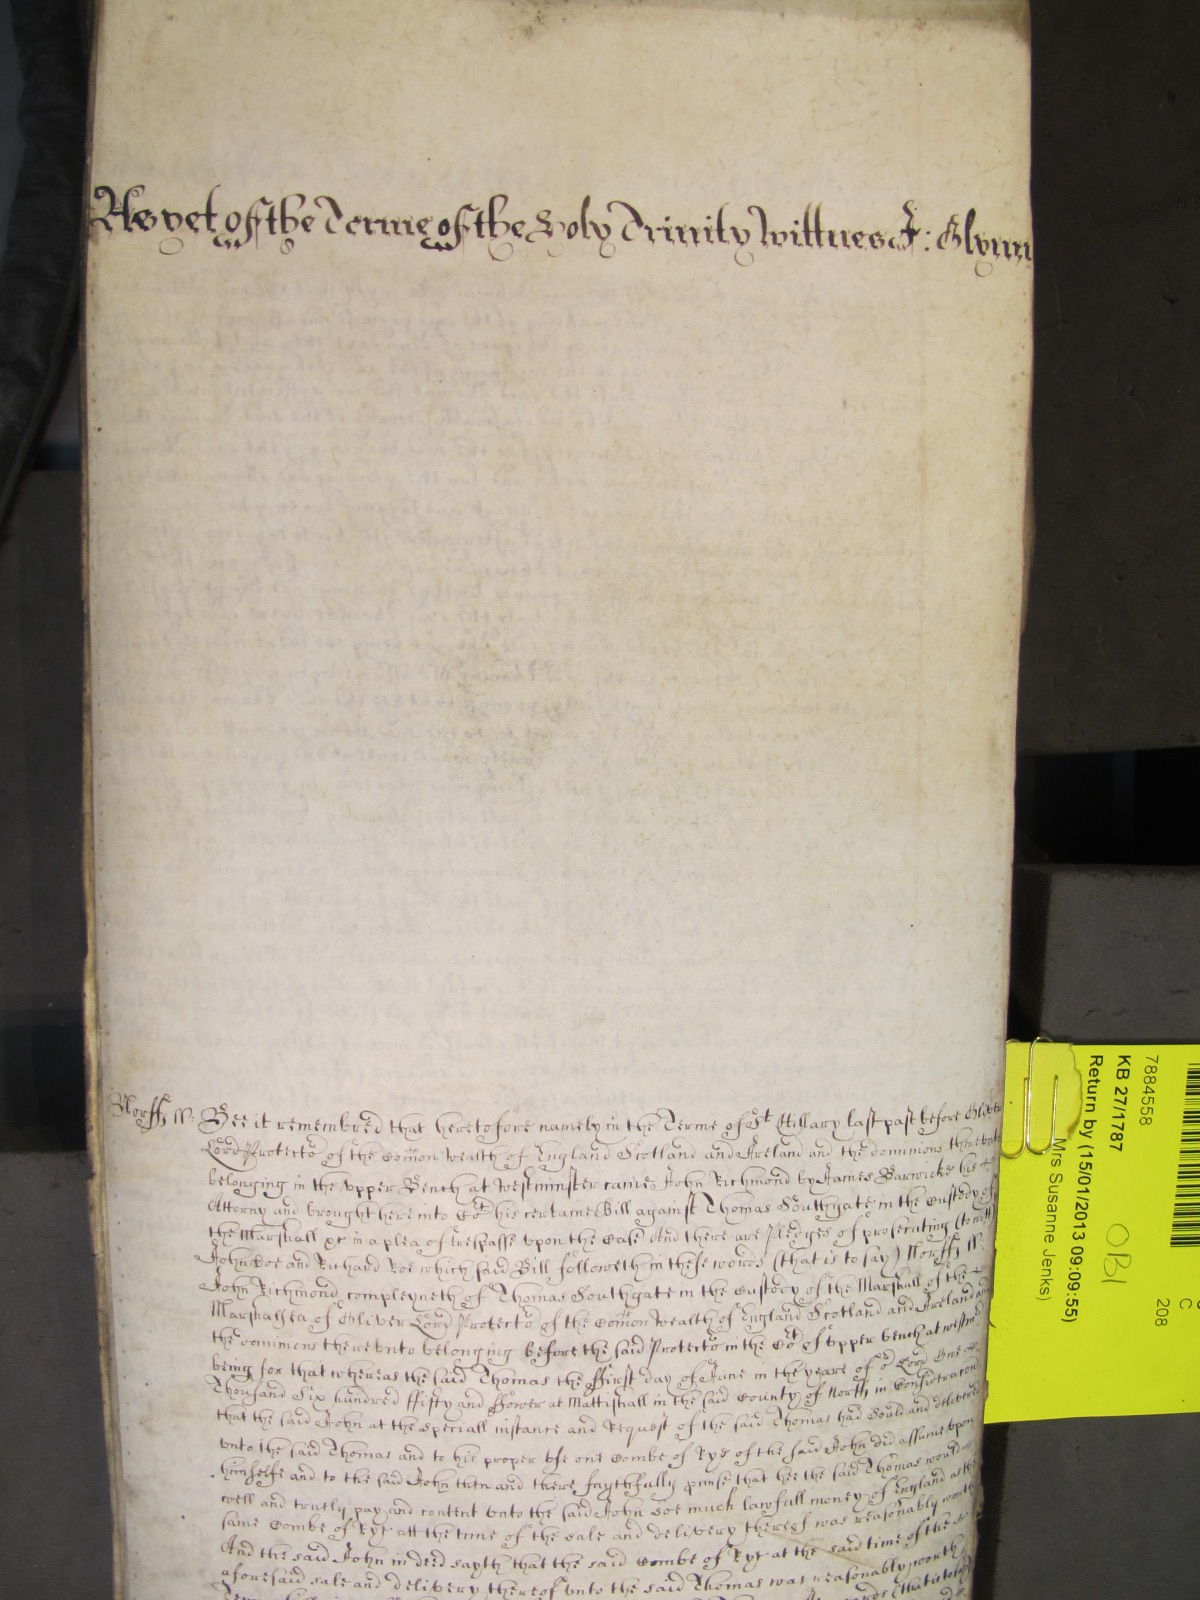 As yet of the Terme of the Holy Trinity Wittnes J: Glynn
Norff ss. Bee it remembred that heretofore namely in the Terme of St Hillary last past before Oliver
Lord Protector of the Comon Wealth of England Scotland and Ireland and the dominions thereunto
belonging in the vpper Bench at Westminster came John Richmond by James Barwicke his
Attorny and brought here into Cort his certaine Bill against Thomas Southgate in the Custody of
the Marshall &c in a plea of trespasse vpon the Case And there are Pledges of prosecuting (to witt)
John Doe and Richard Roe which said Bill followeth in these words (that is to say) Norff ss.
John Richmond compleyneth of Thomas Southgate in the Custody of the Marshall of the
Marshallsea of Oliver Lord Protector of the Comon Wealth of England Scotland and Ireland and
the dominions therevnto belonging before the said Protector in the Cort of vpper bench at westmr
being for that whereas the said Thomas the ffirst day of June in the yeare of or Lord One
Thousand Six hundred ffifty and ffower at Mattishall in the said County of Norff in Considracon
that the said John at the speciall instance and Request of the said Thomas had sould and delivered
vnto the said Thomas and to his proper vse one Combe of Rye of the said John did assume vpon
himselfe and to the said John then and there faythfully pmise that hee the said Thomas would
well and truely pay and content vnto the said John soe much lawfull money of England as the
same Combe of Rye att the time of the sale and delivery thereof was reasonably worth
And the said John in deed sayth that the said Combe of Rye at the said time of the
aforesaid sale and delivery thereof vnto the said Thomas was reasonably worth
(that is to say)
7884558
KB 27/1787
Return by (15/01/2013 09:09:55)
Mrs Susanne Jenks)
OBI
C
208